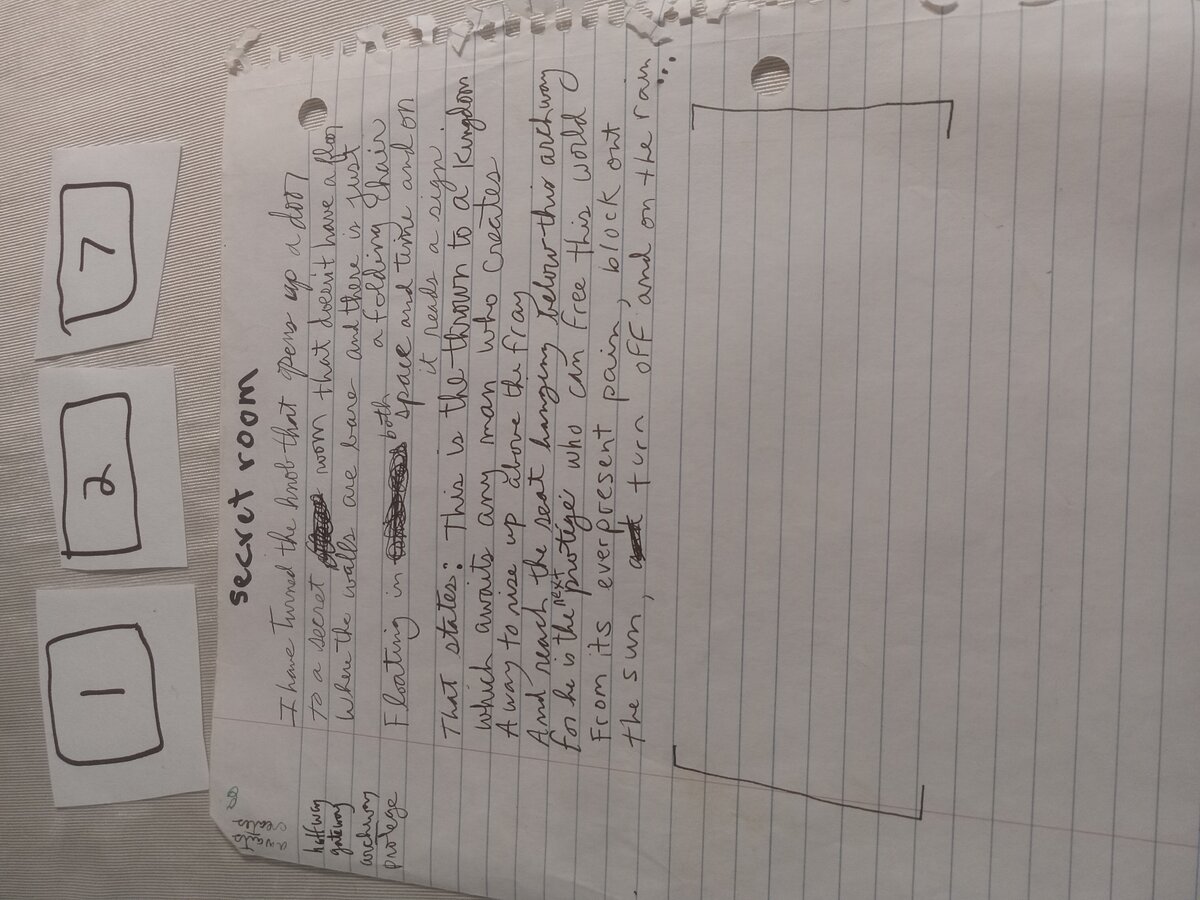 1 2 7
secret room
I have Turned the knob that opens up a door
To a secret room that doesn't have a floor
Where the walls are bare and there is just
a folding chair
Floating in both space and time and on
it reads a sign
That states: This is the thrown to a kingdom
which awaits any man who creates
A way to rise up above the fray
And reach the seat hanging below this archway
for he is the next protégé who can free this world
From its everpresent pain, block out
the sun, turn off and on the rain...
awaits
creates
halfway
gateway
archway
protege